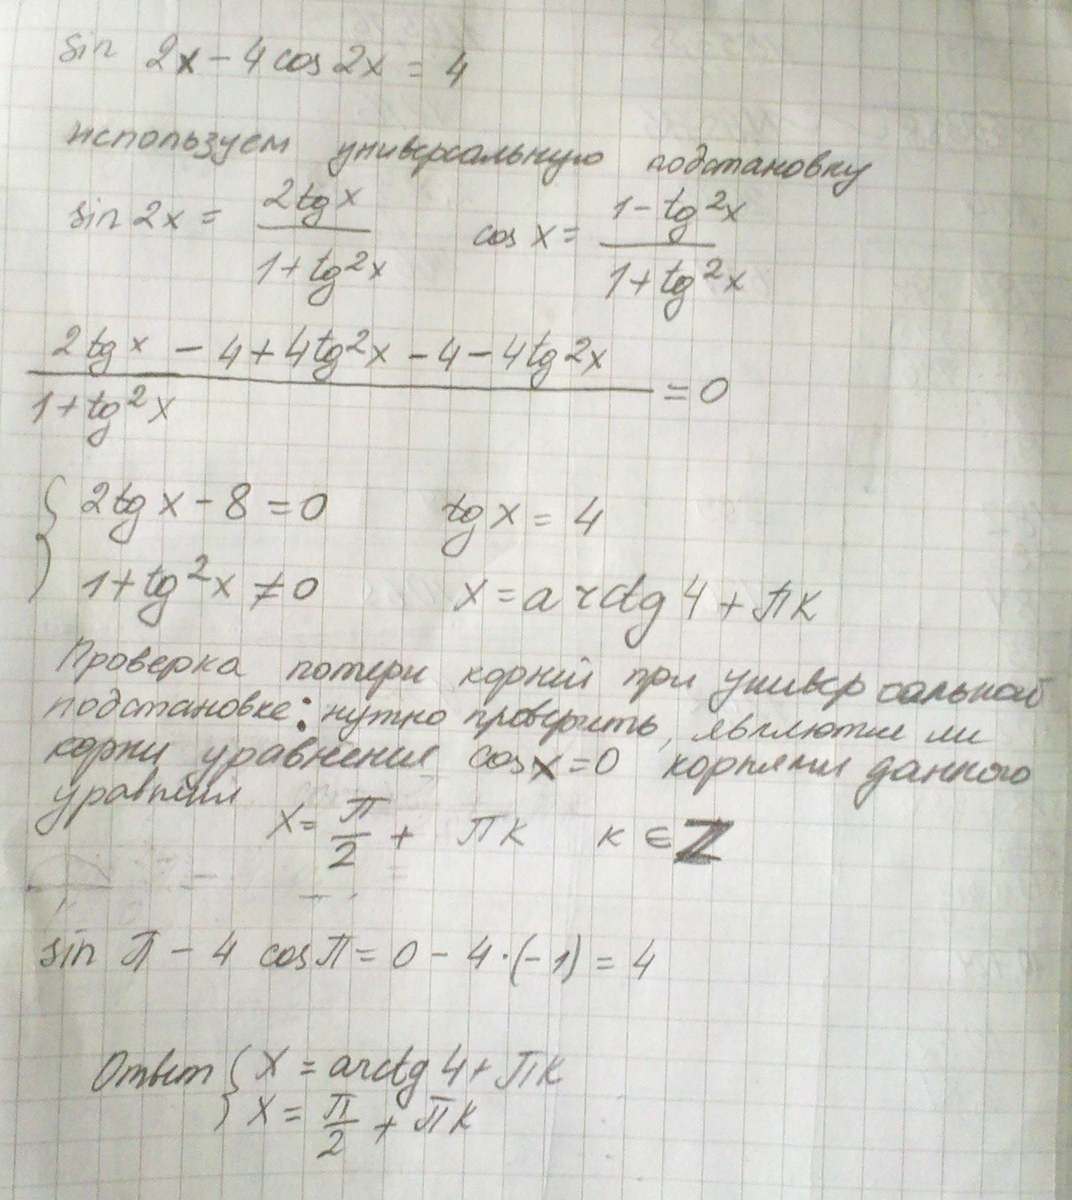 sin 2x - 4 cos 2x = 4
используем универсальную подстановку
sin 2x = 2tg x / 1 + tg²x   cos x = 1 - tg²x / 1 + tg²x
2tg x - 4 + 4tg²x - 4 - 4tg²x / 1 + tg²x = 0
{ 2tg x - 8 = 0   tg x = 4
1 + tg²x ≠ 0   x = arctg 4 + πк
Проверка потери корней при универсальной
подстановке: нужно проверить, являются ли
корни уравнения cos x = 0 корнями данного
уравнения
x = π/2 + πк   к ∈ Z
sin π - 4 cos π = 0 - 4·(-1) = 4
Ответ { x = arctg 4 + πк
x = π/2 + πк